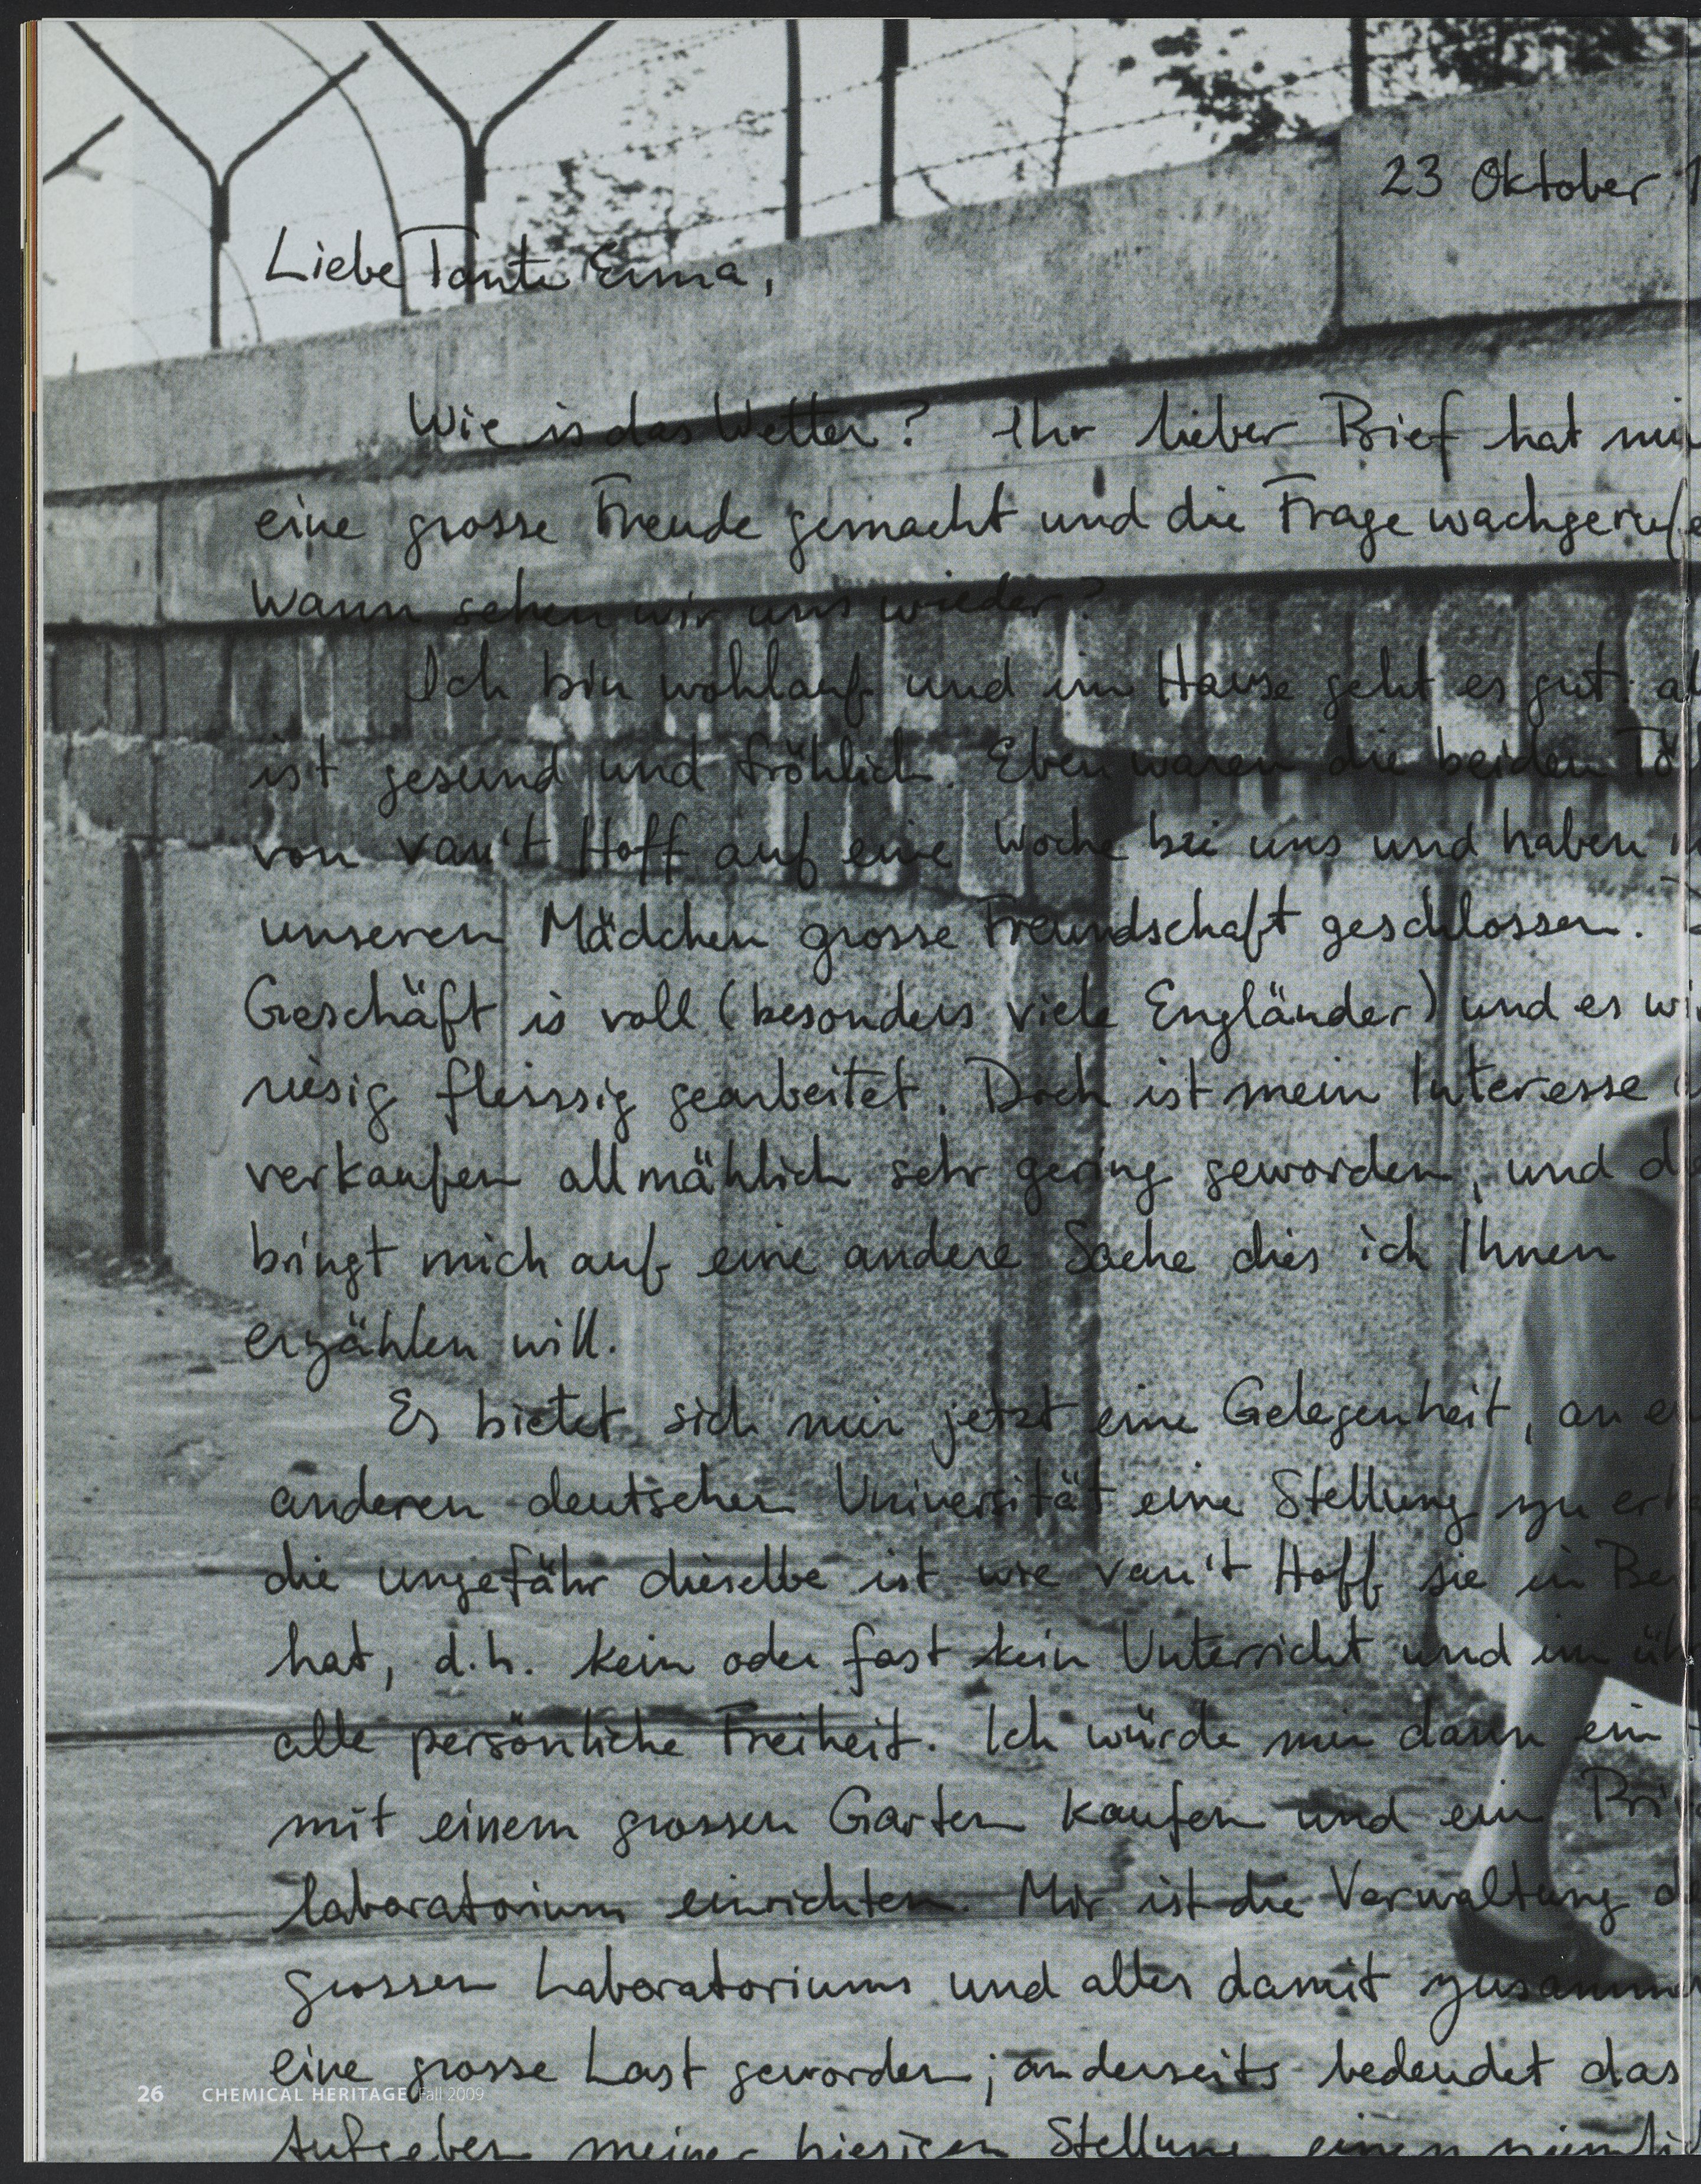 23 Oktober 1
Liebe Tante Erma,
Wie is das Wetter? Ihr lieber Brief hat mi
eine grosse Freude gemacht und die Frage wachgerufe
Wann sehen wir uns wieder?
Ich bin wohlauf und im Hause geht es gut: al
ist gesund und fröhlich. Eben waren die beiden Tö
von van't Hoff auf eine Woche bei uns und haben
unseren Mädchen grosse Freundschaft geschlossen.
Geschäft is voll (besonders viele Engländer) und es wi
riesig fleissig gearbeitet. Doch ist mein Interesse
verkaufen allmählich sehr gering geworden, und d
bringt mich auf eine andere Sache dies ich Ihnen
erzählen will.
Es bietet sich mir jetzt eine Gelegenheit, an e
anderen deutschen Universität eine Stellung zu erh
die ungefähr dieselbe ist wie van't Hoff sie in Ber
hat, d.h. kein oder fast kein Unterricht und im üb
alle persönliche Freiheit. Ich würde mir dann ein
mit einem grossen Garten kaufen und ein Pri
laboratorium einrichten. Mir ist die Verwaltung d
grossen Laboratoriums und alles damit zusamm
eine grosse Last geworden; anderseits bedeudet das
Aufgeben meiner hiesigen Stellung einen
26 CHEMICAL HERITAGE Fall 2009